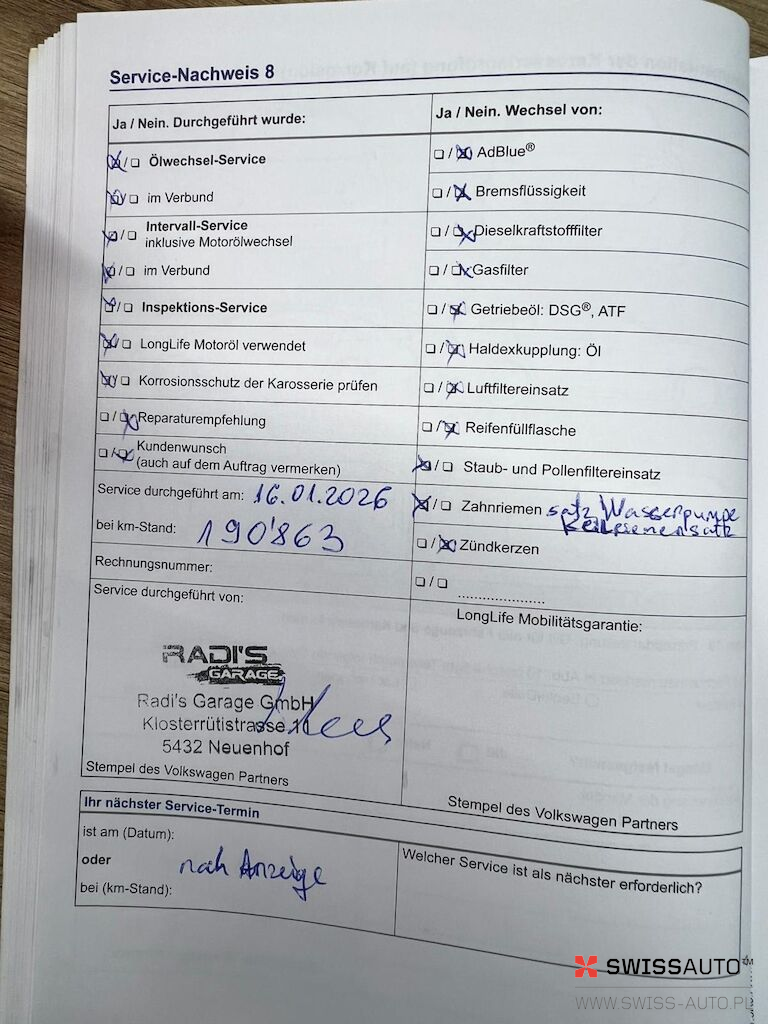 Service-Nachweis 8
Ja / Nein. Durchgeführt wurde:
Ölwechsel-Service
im Verbund
Intervall-Service
inklusive Motorölwechsel
im Verbund
Inspektions-Service
LongLife Motoröl verwendet
Korrosionsschutz der Karosserie prüfen
Reparaturempfehlung
Kundenwunsch
(auch auf dem Auftrag vermerken)
Service durchgeführt am: 16.01.2026
bei km-Stand: 190'863
Rechnungsnummer:
Service durchgeführt von:
RADI'S
GARAGE
Radi's Garage GmbH
Klosterrütistrasse 11
5432 Neuenhof
Stempel des Volkswagen Partners
Ja / Nein. Wechsel von:
AdBlue®
Bremsflüssigkeit
Dieselkraftstofffilter
Gasfilter
Getriebeöl: DSG®, ATF
Haldexkupplung: Öl
Luftfiltereinsatz
Reifenfüllflasche
Staub- und Pollenfiltereinsatz
Zahnriemen satz Wasserpumpe
Zündkerzen
LongLife Mobilitätsgarantie:
Stempel des Volkswagen Partners
Ihr nächster Service-Termin
ist am (Datum):
oder
nach Anzeige
bei (km-Stand):
Welcher Service ist als nächster erforderlich?
SWISSAUTO™
WWW.SWISS-AUTO.PL